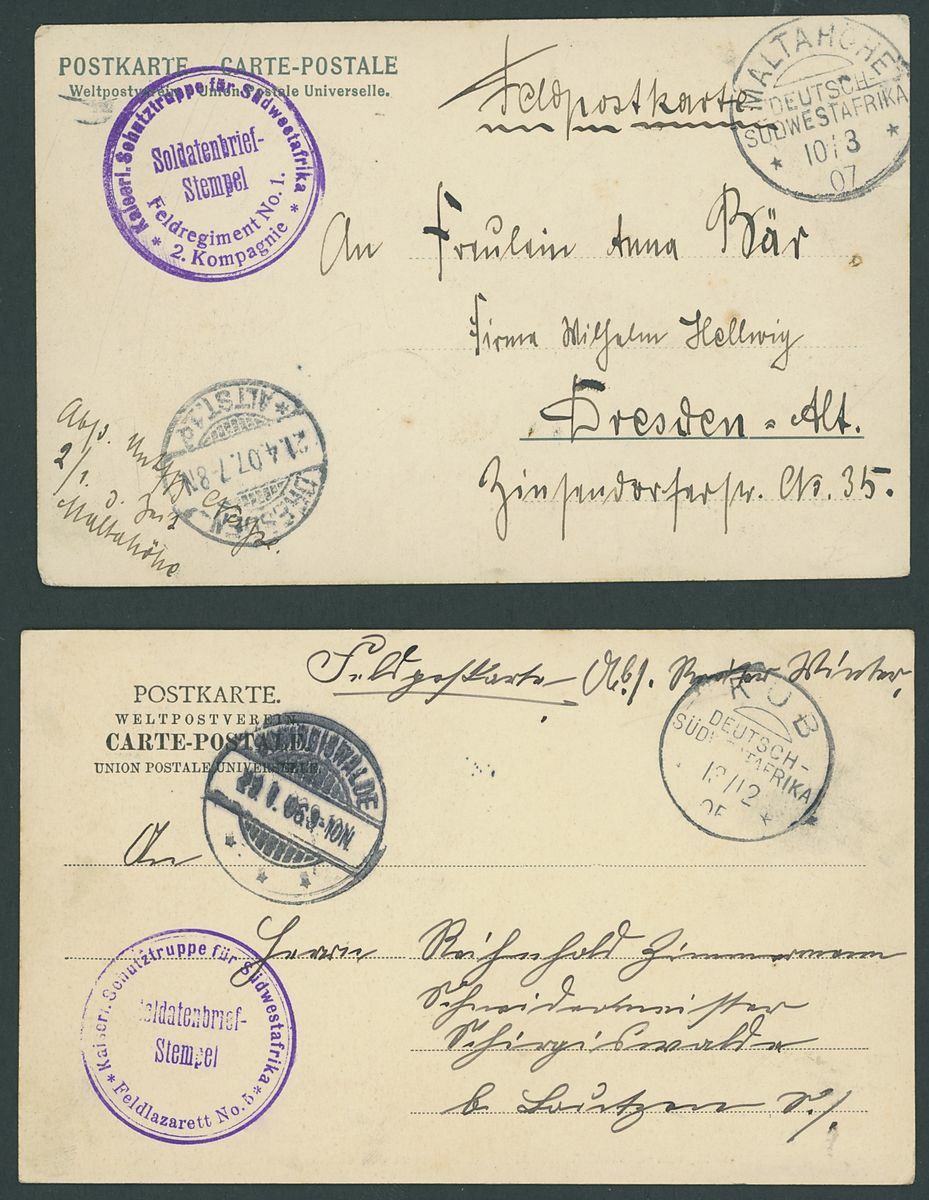 POSTKARTE CARTE-POSTALE
Weltpostverein Union Postale Universelle.
Feldpostkarte
MALTAHÖHE
DEUTSCH-
SÜDWESTAFRIKA
* 10/3 *
07
* Kaiserl. Schutztruppe für Südwestafrika *
Soldatenbrief-
Stempel
Feldregiment No. 1.
2. Kompagnie
An Freulein Anna Bär
Firma Wilhelm Hellwig
Dresden - Alt.
Zinsendorferstr. No. 35.
DRESDEN
* ALTST.
21.4.07.7-8N
Abs.
2/1.
z. Zeit
Maltahöhe
Feldpostkarte Abs. Reiter Winter
POSTKARTE.
WELTPOSTVEREIN
CARTE-POSTALE
UNION POSTALE UNIVERSELLE.
SCHIRGISWALDE
06 9-10N.
KUB
DEUTSCH-
SÜDWESTAFRIKA
12/12 *
05
An
Herrn Reihnhold Zimmermann
Schneidermeister
Schirgiswalde
b. Bautzen S./
Kaiserl. Schutztruppe für Südwestafrika
Soldatenbrief-
Stempel
* Feldlazarett No. 5 *